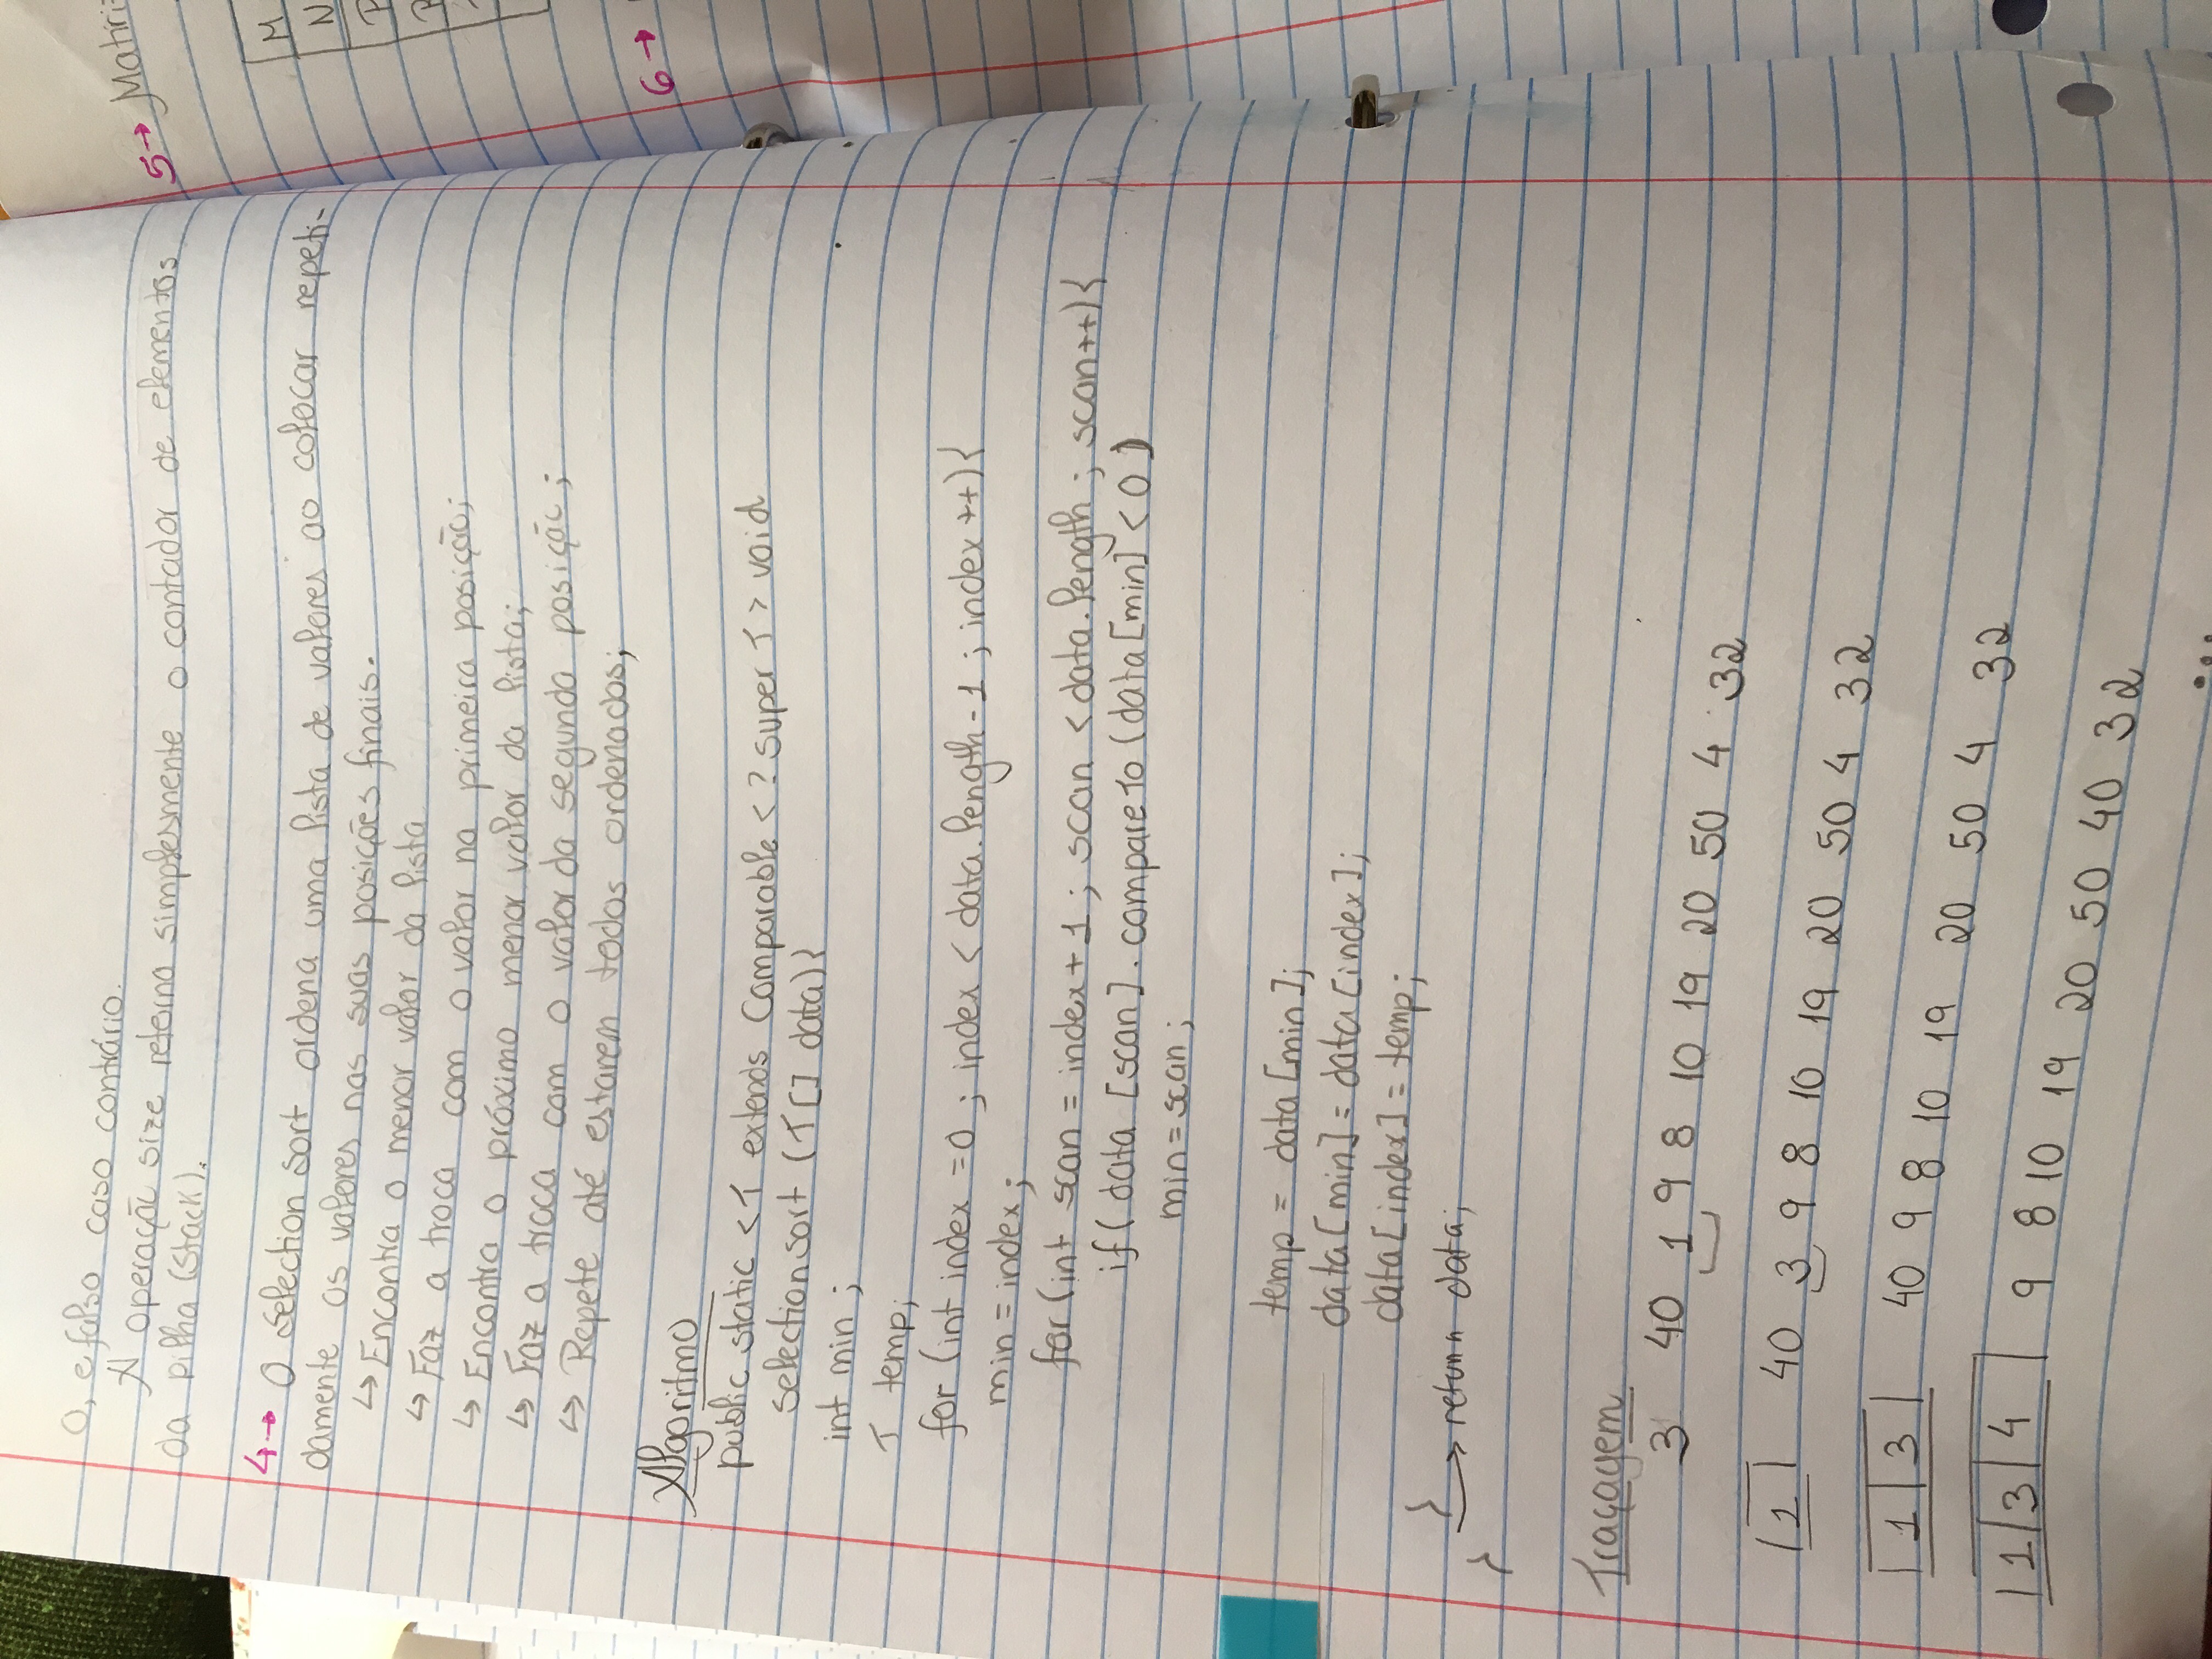 0, e falso caso contrário.
A operação size retorna simplesmente o contador de elementos
da pilha (stack).
4→ O selection sort ordena uma lista de valores ao colocar repeti-
damente os valores nas suas posições finais.
↳ Encontra o menor valor da lista
↳ Faz a troca com o valor na primeira posição;
↳ Encontra o próximo menor valor da lista;
↳ Faz a troca com o valor da segunda posição;
↳ Repete até estarem todos ordenados;
Algoritmo
public static <T extends Comparable <? super T> void
selectionsort (T[] data){
int min;
T temp;
for (int index =0; index < data.length-1; index++){
min = index;
for (int scan = index+1; scan < data.length; scan++){
if( data [scan]. compareTo (data[min] <0)
min=scan;
temp = data[min];
data[min] = data[index];
data[index] = temp;
}
→ return data;
}
Traçagem
3 40 1 9 8 10 19 20 50 4 32
1 40 3 9 8 10 19 20 50 4 32
1 3 40 9 8 10 19 20 50 4 32
1 3 4 9 8 10 19 20 50 40 32
...
5→
M
N
6→